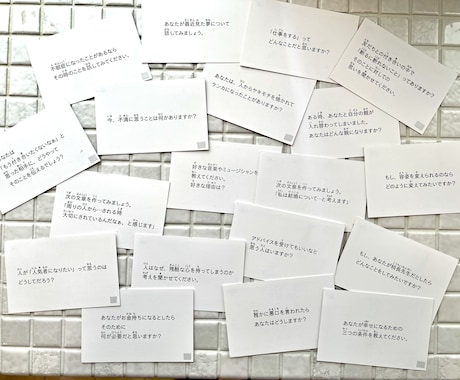 不登校になったことがあるなら
その時のことを話してみてください。
あなたが最近見た夢について
話してみましょう。
「仕事をする」って
どんなことだと思いますか？
友だちとの付き合いの中で
「断るに断れないこと」ってありますか？
そのことに対しての
思いを聞かせてください。
あなたは、人からヤキモチを焼かれて
ケンカになったことがありますか？
今、不満に思うことは何がありますか？
ある時、あなたと自分の親が
入れ替わってしまいました。
あなたはどんな親になりますか？
あなたは
「もう付き合いたくないなぁ」と
思った相手に、どうやって
そのことを伝えるでしょう？
好きな音楽やミュージシャンを
教えてください。
好きな理由は？
次の文章を作ってみましょう。
「周りの人から…される時
大切にされているんだなぁ、と感じます」
次の文章を作ってみましょう。
「私は結婚について…と考えます」
もし、容姿を変えられるのなら
どのように変えてみたいですか？
人が「人気者になりたい」って思うのは
どうしてだろう？
人はなぜ、残酷な心を持ってしまうのか
考えを聞かせてください。
アドバイスを受けてもいいなと
思う人はいますか？
もし、あなたが校長先生だとしたら
どんなことをしてみたいですか？
あなたがお金持ちになるとしたら
そのために
何が必要だと思いますか？
誰かに悪口を言われたら
あなたはどうしますか？
あなたが幸せになるための
三つの条件を教えてください。